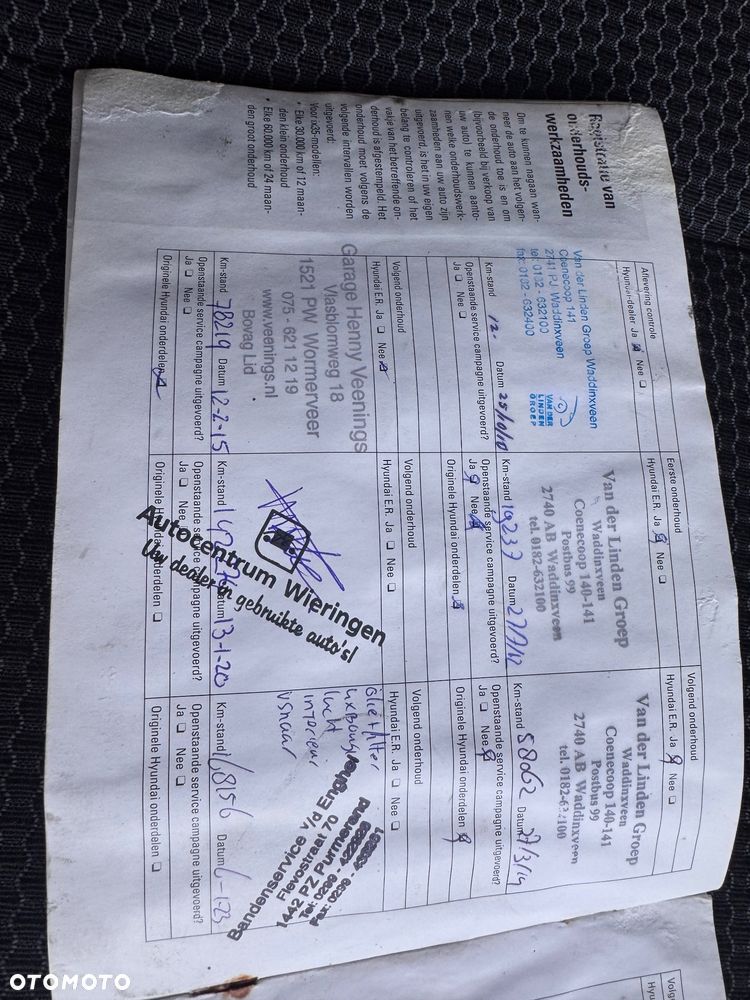 Registratie van
onderhouds-
werkzaamheden
Om te kunnen nagaan wan-
neer de auto aan het volgen-
de onderhoud toe is en om
(bijvoorbeeld bij verkoop van
uw auto) te kunnen aanto-
nen welke onderhoudswerk-
zaamheden aan uw auto zijn
uitgevoerd, is het in uw eigen
belang te controleren of het
vakje van het betreffende on-
derhoud is afgestempeld. Het
onderhoud moet volgens de
volgende intervallen worden
uitgevoerd:
Voor ix35-modellen:
• Elke 30.000 km of 12 maan-
den klein onderhoud
• Elke 60.000 km of 24 maan-
den groot onderhoud
Aflevering controle
Hyundai-dealer Ja Nee
Van der Linden Groep Waddinxveen
Coenecoop 141
2741 PJ Waddinxveen
tel: 0182 - 632100
fax: 0182 - 632400
VAN DER
LINDEN
GROEP
Km-stand 12 - Datum 25/10/10
Openstaande service campagne uitgevoerd?
Ja Nee
Eerste onderhoud
Hyundai E.R. Ja Nee
Van der Linden Groep
Waddinxveen
Coenecoop 140-141
Postbus 99
2740 AB Waddinxveen
tel. 0182-632100
Km-stand 19237 Datum 27/7/12
Openstaande service campagne uitgevoerd?
Ja Nee
Originele Hyundai onderdelen
Volgend onderhoud
Hyundai E.R. Ja Nee
Van der Linden Groep
Waddinxveen
Coenecoop 140-141
Postbus 99
2740 AB Waddinxveen
tel. 0182-632100
Km-stand 58062 Datum 27/3/14
Openstaande service campagne uitgevoerd?
Ja Nee
Originele Hyundai onderdelen
Volgend onderhoud
Hyundai E.R. Ja Nee
Garage Henny Veenings
Vlasblomweg 18
1521 PW Wormerveer
075 - 621 12 19
www.veenings.nl
Bovag Lid
Km-stand 78219 Datum 12-2-15
Openstaande service campagne uitgevoerd?
Ja Nee
Originele Hyundai onderdelen
Volgend onderhoud
Hyundai E.R. Ja Nee
Autocentrum Wieringen
Uw dealer in gebruikte auto's!
Km-stand Datum 13-1-20
Openstaande service campagne uitgevoerd?
Ja Nee
Originele Hyundai onderdelen
Volgend onderhoud
Hyundai E.R. Ja Nee
olie+filter
lucht
interieur
Bandenservice v/d Eng
Flevostraat 70
1442 PZ Purmerend
Tel: 0299 -
Fax: 0299 -
Km-stand 168156 Datum 6-1-23
Openstaande service campagne uitgevoerd?
Ja Nee
Originele Hyundai onderdelen
Volg
Hyu
OTOMOTO